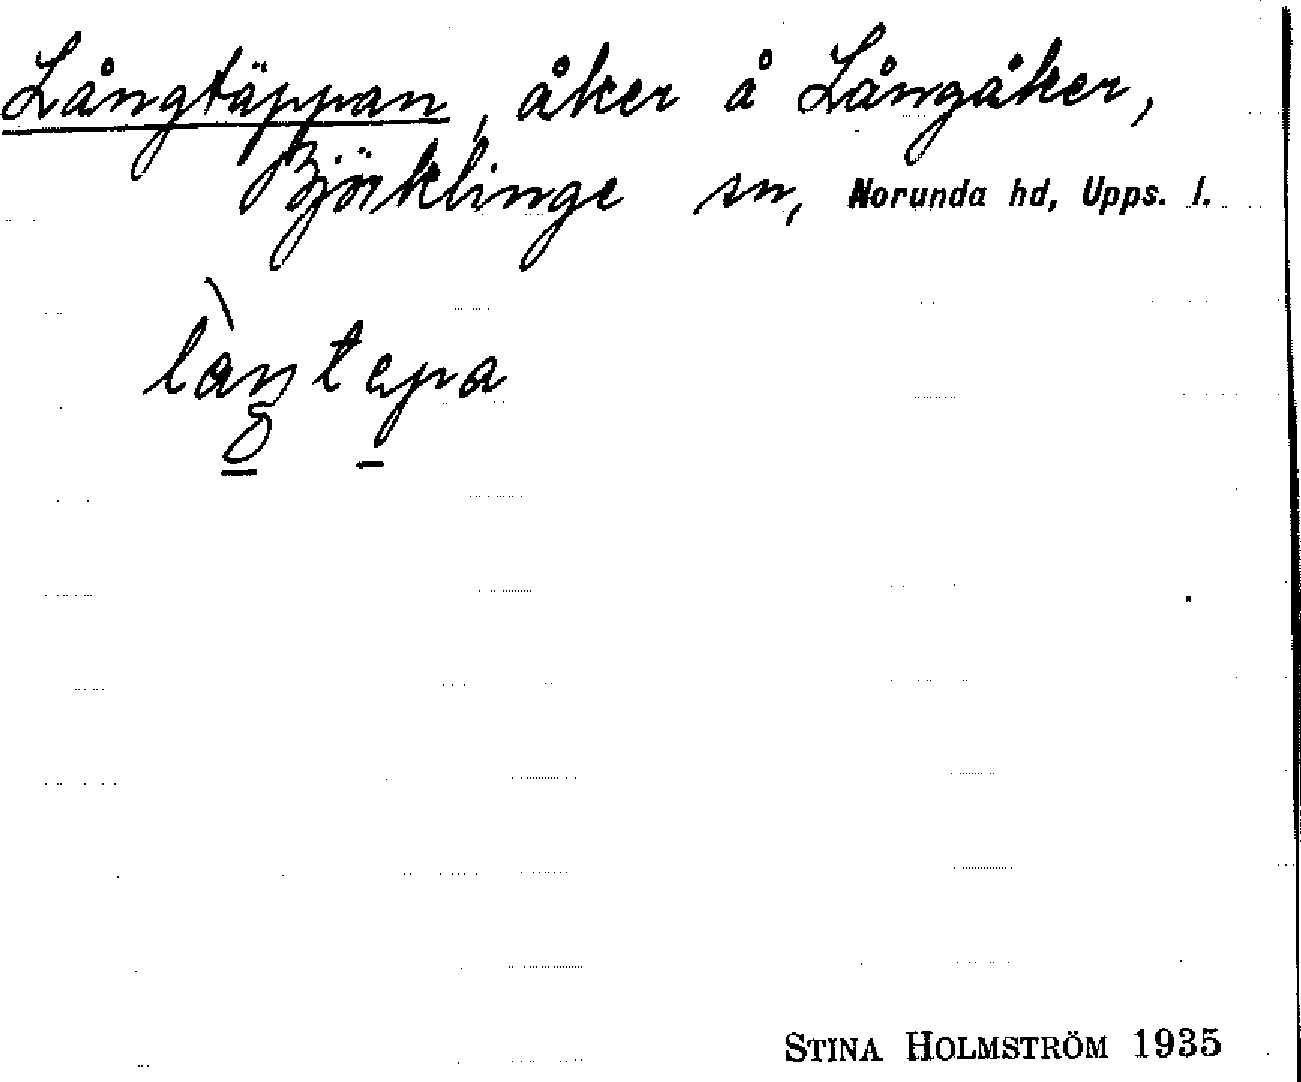 Långtäppan, åker å Långåker,
Björklinge sn, Norunda hd, Upps. l.
làŋtepa
STINA HOLMSTRÖM 1935